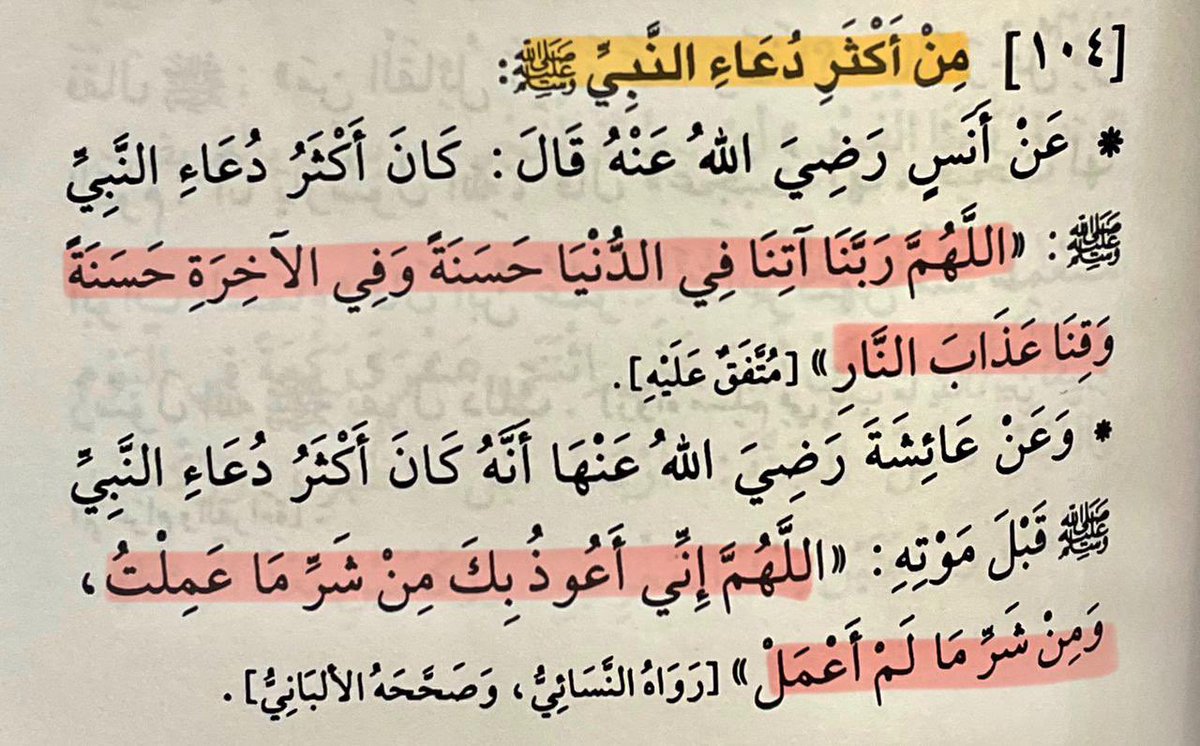 [١٠٤] مِنْ أَكْثَرِ دُعَاءِ النَّبِيِّ ﷺ:
* عَنْ أَنَسٍ رَضِيَ اللهُ عَنْهُ قَالَ: كَانَ أَكْثَرُ دُعَاءِ النَّبِيِّ
ﷺ: «اللَّهُمَّ رَبَّنَا آتِنَا فِي الدُّنْيَا حَسَنَةً وَفِي الآخِرَةِ حَسَنَةً
وَقِنَا عَذَابَ النَّارِ» [مُتَّفَقٌ عَلَيْهِ].
* وَعَنْ عَائِشَةَ رَضِيَ اللهُ عَنْهَا أَنَّهُ كَانَ أَكْثَرُ دُعَاءِ النَّبِيِّ
ﷺ قَبْلَ مَوْتِهِ: «اللَّهُمَّ إِنِّي أَعُوذُ بِكَ مِنْ شَرِّ مَا عَمِلْتُ،
وَمِنْ شَرِّ مَا لَمْ أَعْمَلْ» [رَوَاهُ النَّسَائِيُّ، وَصَحَّحَهُ الألبَانِيُّ].